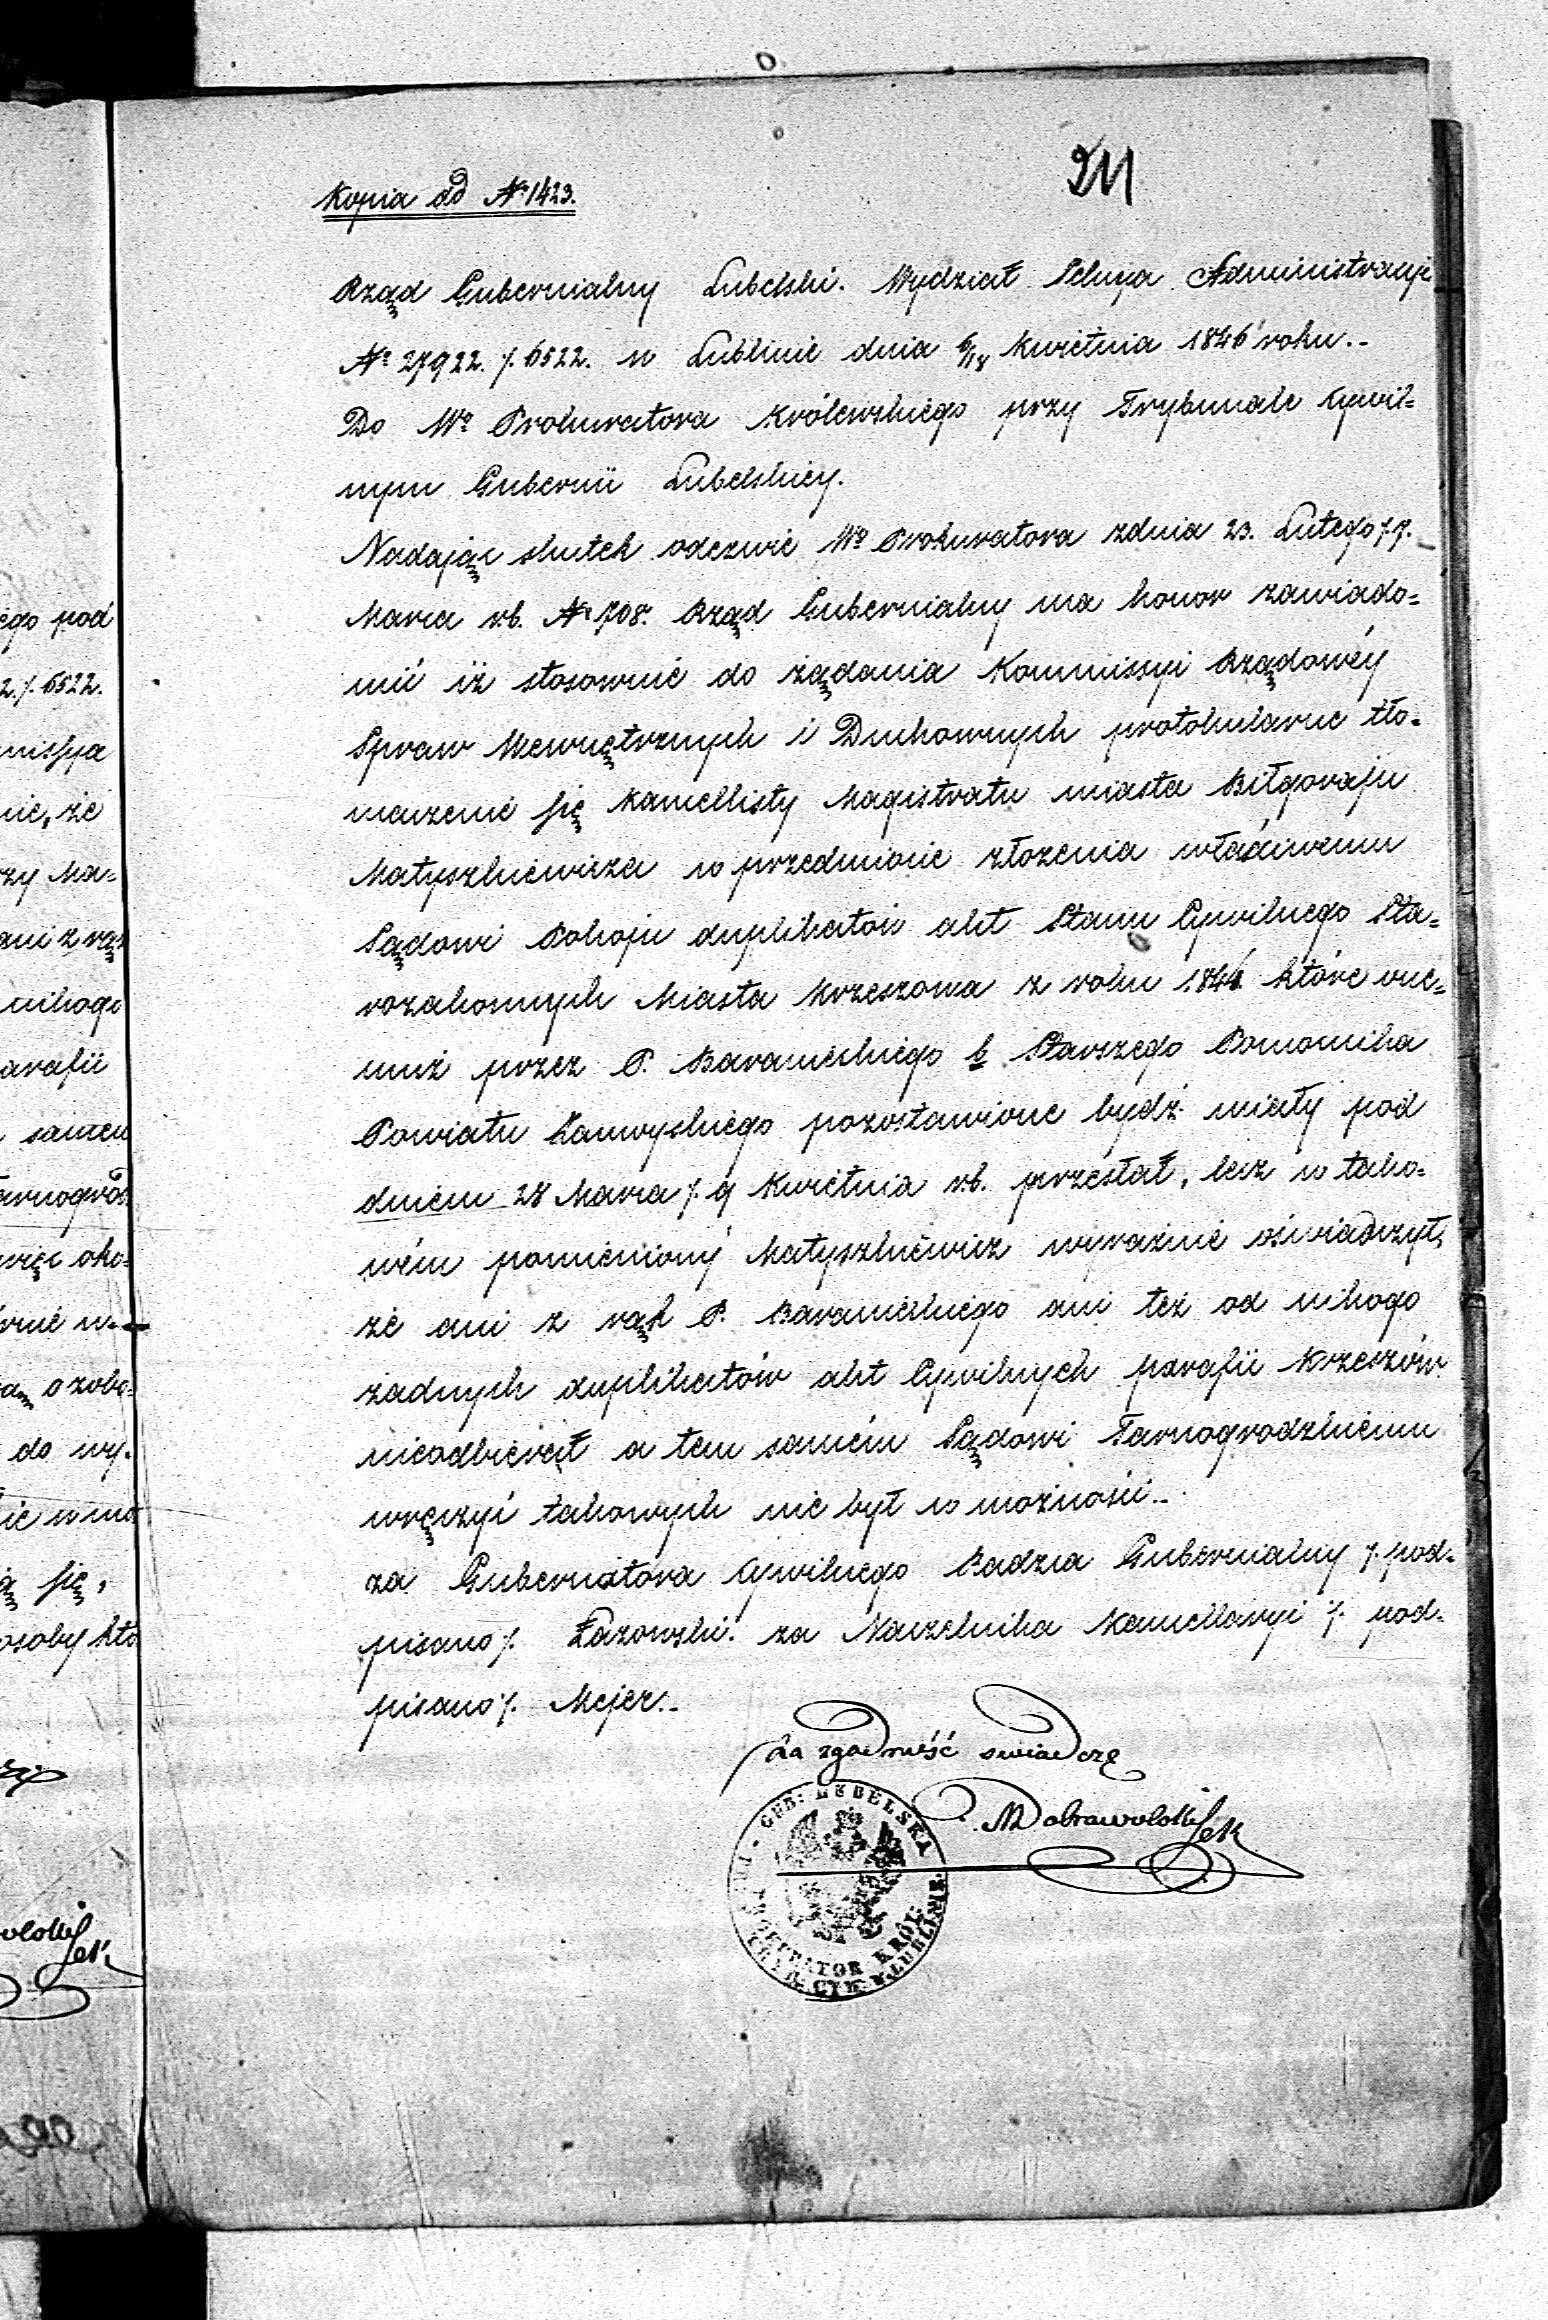 211
Kopia ad № 1423.
Rząd Gubernialny Lubelski. Wydział Sekcya Administracyi
№ 27922. /. 6522. w Lublinie dnia 6/18 Kwietnia 1846 roku..
Do Wº Prokuratora Królewskiego przy Trybunale Cywil=
nym Gubernii Lubelskiey.
Nadając skutek odezwie Wº Prokuratora zdnia 23. Lutego /7.
Marca r.b. № 708. Rząd Gubernialny ma honor zawiado=
mić iż stosownie do żądania Kommissyi Rządowéy
Spraw Wewnętrznych i Duchownych protokularne tło=
maczenie się Kancellisty Magistratu miasta Biłgoraju
Matyszkiewicza w przedmiocie złozenia właściwemu
Sądowi Pokoju duplikatów akt Stanu Cywilnego Sta=
rozakonnych Miasta Krzeszowa z roku 1841 które onе=
muż przez P. Baranieckiego b Starszego Pomocnika
Powiatu Zamoyskiego pozostawione bydź miały pod
dniem 28 Marca /. 9 Kwietnia r.b. przesłał, lecz w tako=
wém pomieniony Matyszkiewicz wyraźnie oświadczył,
że ani z rąk P. Baranieckiego ani też od nikogo
żadnych duplikatów akt Cywilnych parafii Krzeszów
nieodbierał a tem samém Sądowi Tarnogrodzkiemu
wręczyć takowych nie był w możności..
za Gubernatora Cywilnego Radzca Gubernialny /. pod=
pisano /. Łazowski. za Naczelnika Kancellaryi /. pod=
pisano /. Mejer..
Za zgodność swiadczę
Dobrawolski Sek
GUB: LUBELSKA
PROKURATOR KRÓL:
TRYB: CYW: W LUBLINIE
ego pod
2. /. 6522.
nie, że
rzy Ma=
nikogo
arafii